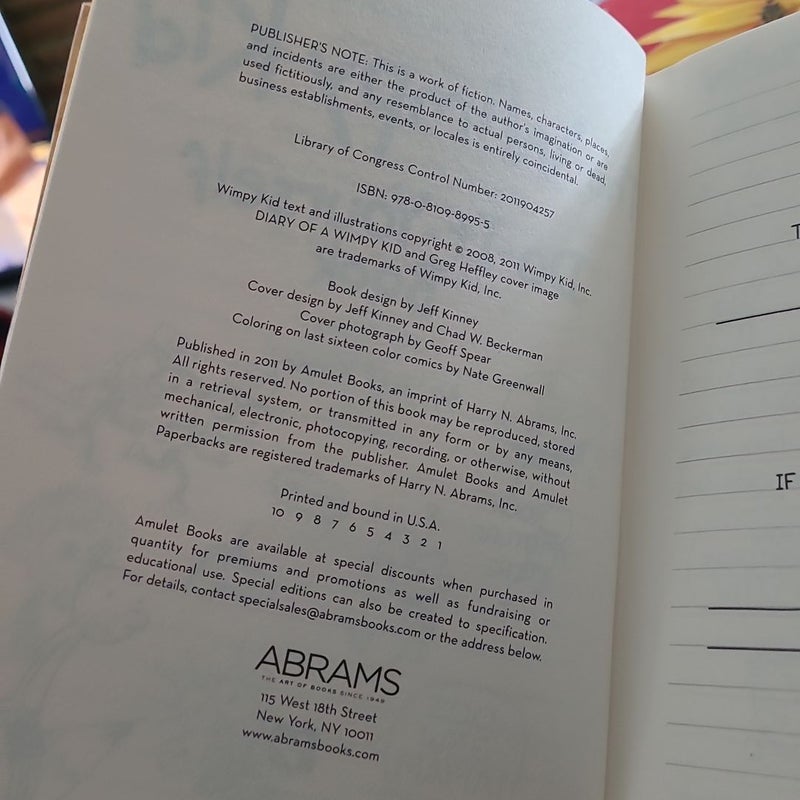 PUBLISHER'S NOTE: This is a work of fiction. Names, characters, places,
and incidents are either the product of the author's imagination or are
used fictitiously, and any resemblance to actual persons, living or dead,
business establishments, events, or locales is entirely coincidental.
Library of Congress Control Number: 2011904257
ISBN: 978-0-8109-8995-5
Wimpy Kid text and illustrations copyright © 2008, 2011 Wimpy Kid, Inc.
DIARY OF A WIMPY KID and Greg Heffley cover image
are trademarks of Wimpy Kid, Inc.
Book design by Jeff Kinney
Cover design by Jeff Kinney and Chad W. Beckerman
Cover photograph by Geoff Spear
Coloring on last sixteen color comics by Nate Greenwall
Published in 2011 by Amulet Books, an imprint of Harry N. Abrams, Inc.
All rights reserved. No portion of this book may be reproduced, stored
in a retrieval system, or transmitted in any form or by any means,
mechanical, electronic, photocopying, recording, or otherwise, without
written permission from the publisher. Amulet Books and Amulet
Paperbacks are registered trademarks of Harry N. Abrams, Inc.
Printed and bound in U.S.A.
10 9 8 7 6 5 4 3 2 1
Amulet Books are available at special discounts when purchased in
quantity for premiums and promotions as well as fundraising or
educational use. Special editions can also be created to specification.
For details, contact specialsales@abramsbooks.com or the address below.
ABRAMS
THE ART OF BOOKS SINCE 1949
115 West 18th Street
New York, NY 10011
www.abramsbooks.com
T
IF